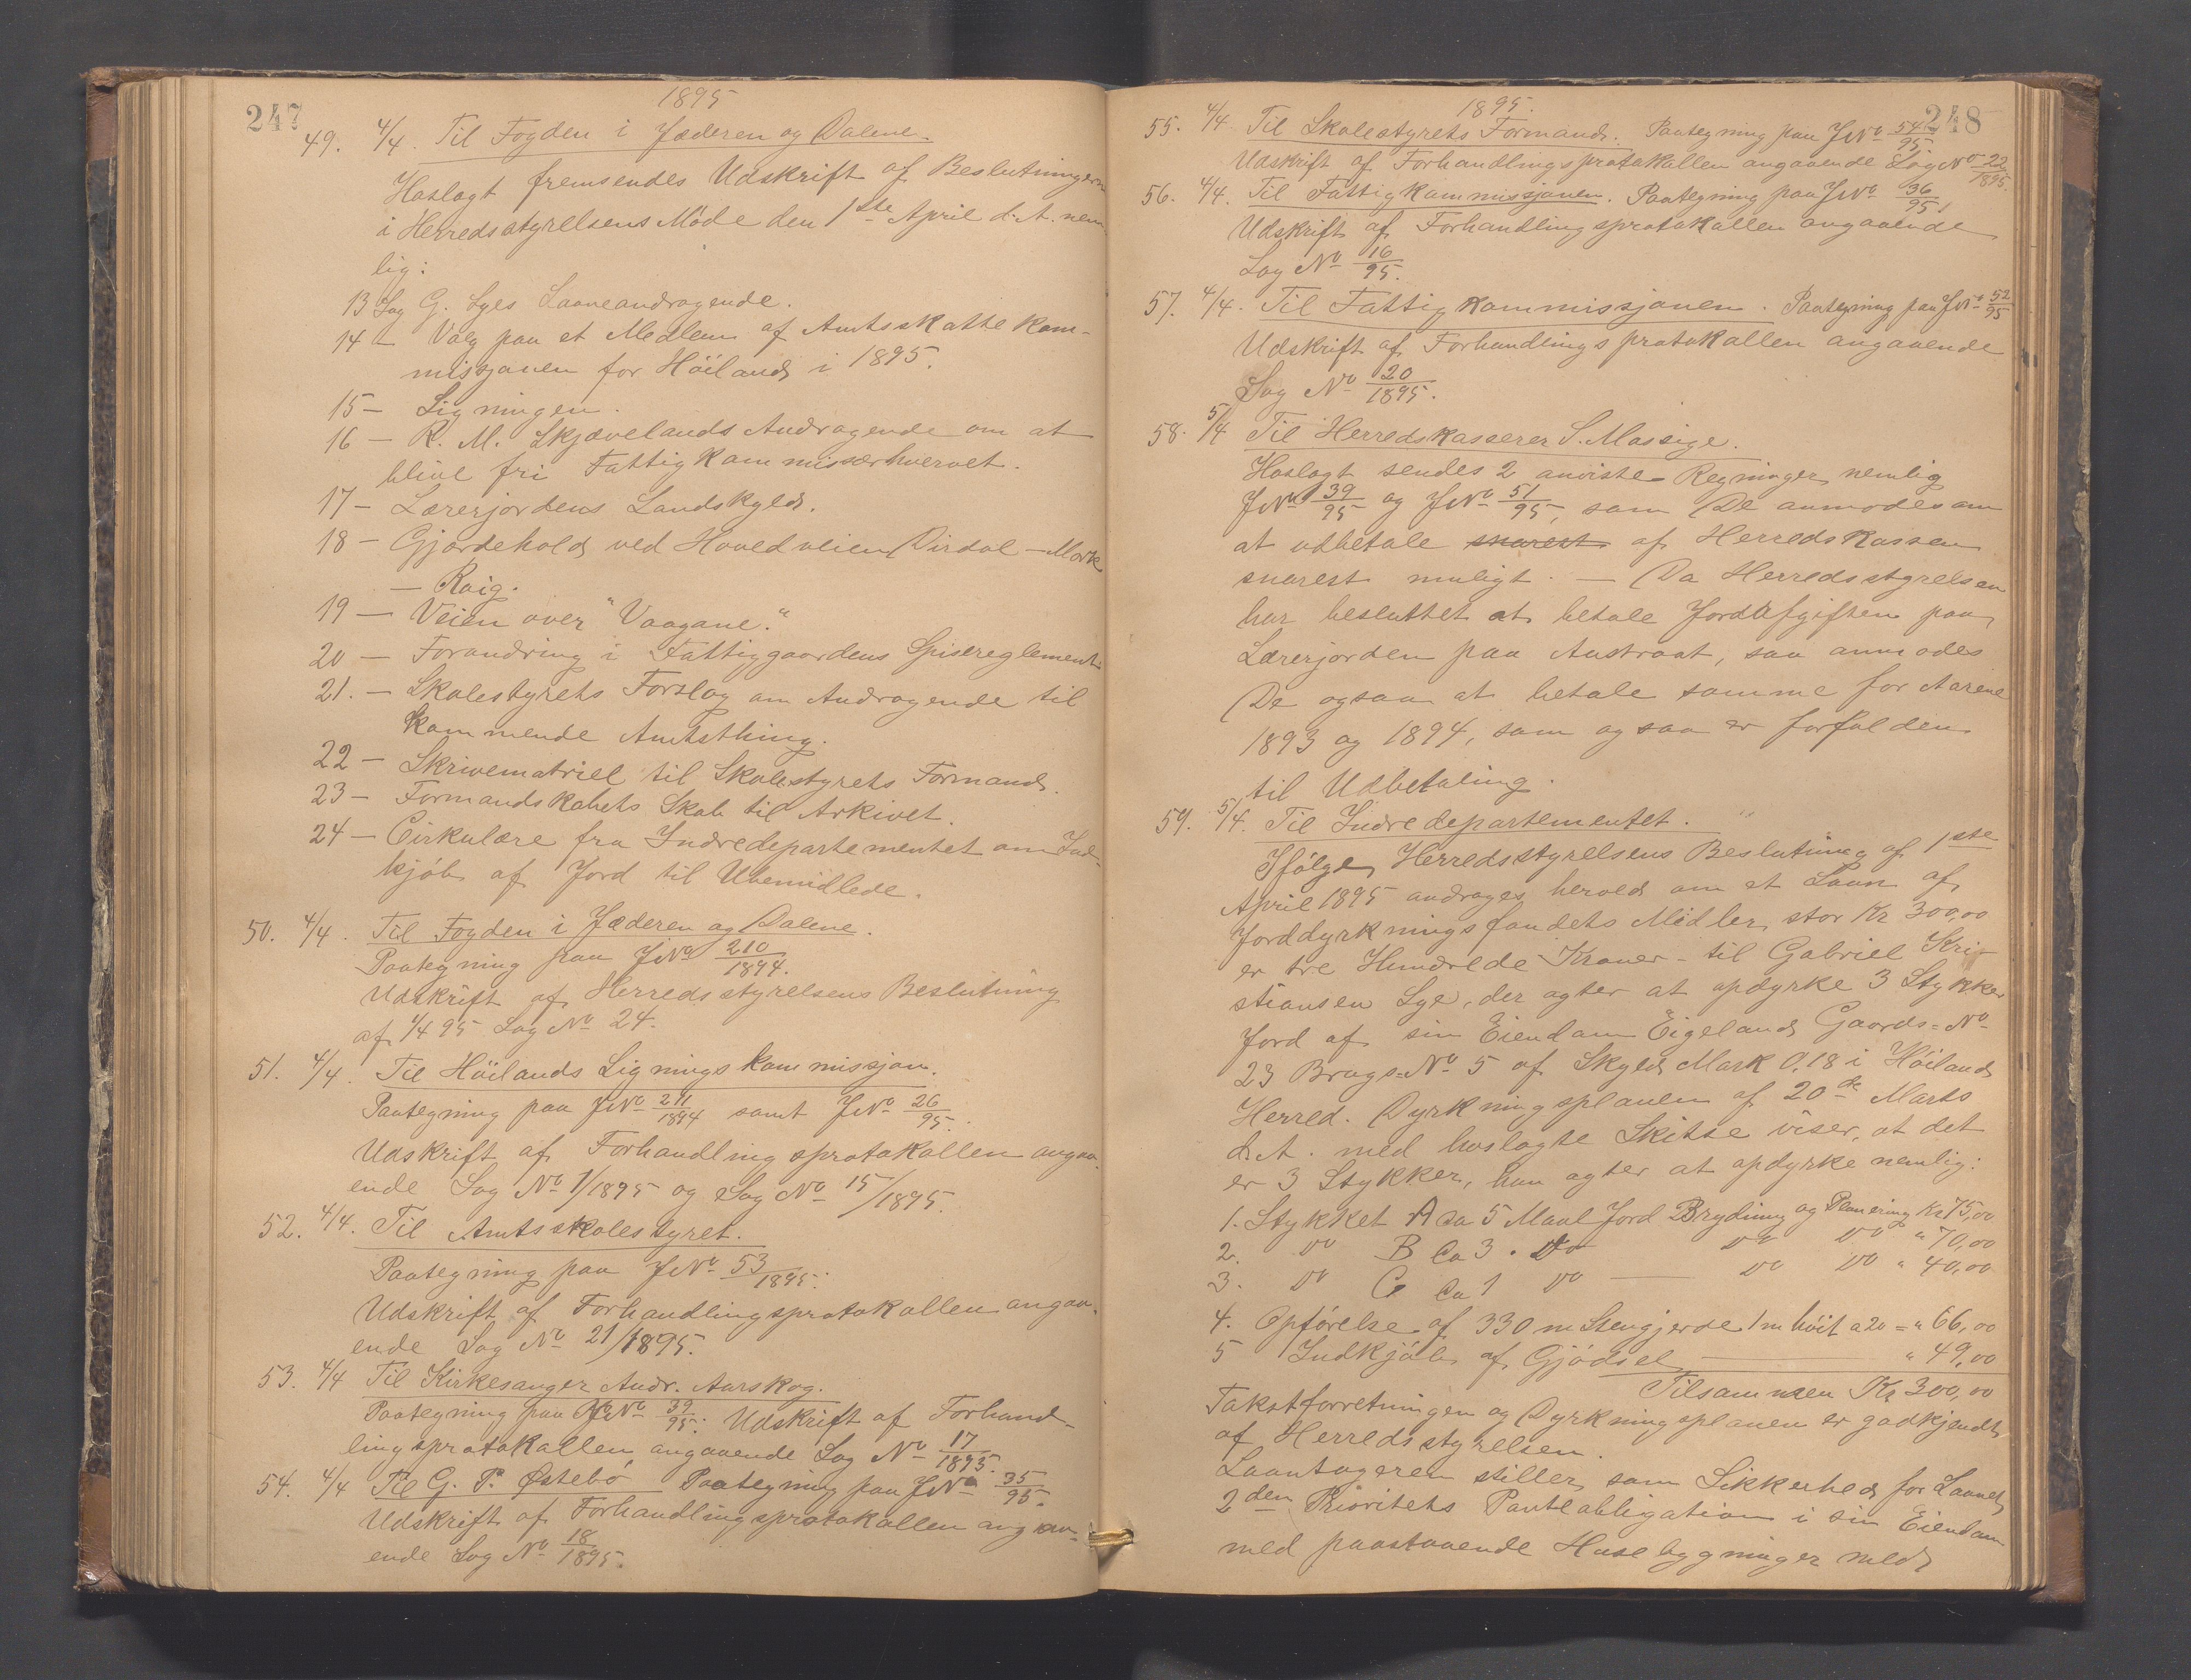 247
1895
49. 4/4. Til Fogden i Jæderen og Dalene.
Hoslagt fremsendes Udskrift af Beslutningerne
i Herredsstyrelsens Möde den 1ste April d. A. nem
lig:
13 Sag G. Lyes Laaneandragende.
14 — Valg paa et Medlem af Amtsskattekom-
missjonen for Höiland i 1895.
15 — Ligningen.
16 — R. M. Skjævelands Andragende om at
blive fri Fattigkommissærhvervet.
17 — Lærerjordens Landskyld.
18 — Gjærdehold ved Hovedveien Dirdal — Mork
— Raig.
19 — Veien over "Vaagane."
20 — Forandring i Fattiggaardens Spisereglement
21. — Skolestyrets Forslag om Andragende til
kommende Amtsthing.
22 — Skrivematriel til Skolestyrets Formand.
23 — Formandskabets Skab til Arkivet.
24 — Cirkulære fra Indredepartementet om Ind-
kjöb af Jord til Ubemidlede.
50. 4/4. Til Fogden i Jæderen og Dalene.
Paategning paa JNo 210/1894.
Udskrift af Herredsstyrelsens Beslutning
af 1/4 95 Sag No 24.
51. 4/4. Til Höilands Ligningskommissjon.
Paategning paa JNo 211/1894 samt JNo 26/95.
Udskrift af Forhandlingsprotokollen angaa-
ende Sag No 1/1895 og Sag No 15/1895.
52. 4/4. Til Amtsskolestyret.
Paategning paa JNo 53/1895:
Udskrift af Forhandlingsprotokollen angaa-
ende Sag No 21/1895.
53. 4/4 Til Kirkesanger Andr. Aarskog.
Paategning paa JNo 39/95: Udskrift af Forhand-
lingsprotokollen angaaende Sag No 17/1895.
54. 4/4 Til G. P. Østebö Paategning paa JNo 35/95.
Udskrift af Forhandlingsprotokollen angaa-
ende Sag No 18/1895.
1895.
248
55. 4/4 Til Skolestyrets Formand. Paategning paa JNo 54/95.
Udskrift af Forhandlingsprotokollen angaaende Sag No 22/1895.
56. 4/4. Til Fattigkommissjonen. Paategning paa JNo 36/95.
Udskrift af Forhandlingsprotokollen angaaende
Sag No 16/95.
57. 4/4. Til Fattigkommissjonen. Paategning paa JNo 52/95
Udskrift af Forhandlingsprotokollen angaaende
Sag No 20/1895.
58. 5/4 Til Herredskasserer S. Massige.
Hoslagt sendes 2 anviste Regninger nemlig
JNo 39/95 og JNo 51/95, som De anmodes om
at udbetale snarest af Herredskassen
snarest muligt. — Da Herredsstyrelsen
har besluttet at betale Jordafgiften paa
Lærerjorden paa Austraat, saa anmodes
De ogsaa at betale samme for Aarene
1893 og 1894, som ogsaa er forfalden
til Udbetaling.
59. 5/4. Til Indredepartementet.
Ifölge Herredsstyrelsens Beslutning af 1ste
April 1895 andrages herved om et Laan af
Jorddyrkningsfondets Midler, stor Kr 300,00
er tre Hundrede Kroner – til Gabriel Kri-
stiansen Lye, der agter at opdyrke 3 Stykker
Jord af sin Eiendom Eigeland Gaards-No
23 Brugs-No 5 af Skyld Mark 0,18 i Höiland
Herred. Dyrkningsplanen af 20de Marts
d. A. med hoslagte Skitse viser, at det
er 3 Stykker, han agter at opdyrke nemlig:
1. Stykket A ca 5 Maal Jord Brydning og Planering Kr 75,00
2. Do B ca 3 . Do Do Do " 70,00
3. Do C ca 1 Do — Do Do " 40,00
4. Opförelse af 330 m Stengjerde 1 m höit a 20 = " 66,00
5 Indkjöb af Gjödsel — " 49,00
Tilsammen Kr 300,00
Takstforretningen og Dyrkningsplanen er godkjendt
af Herredsstyrelsen.
Laantageren stiller som Sikkerhed for Laanet
2den Prioritets Panteobligation i sin Eiendom
med paastaaende Husebygninger med